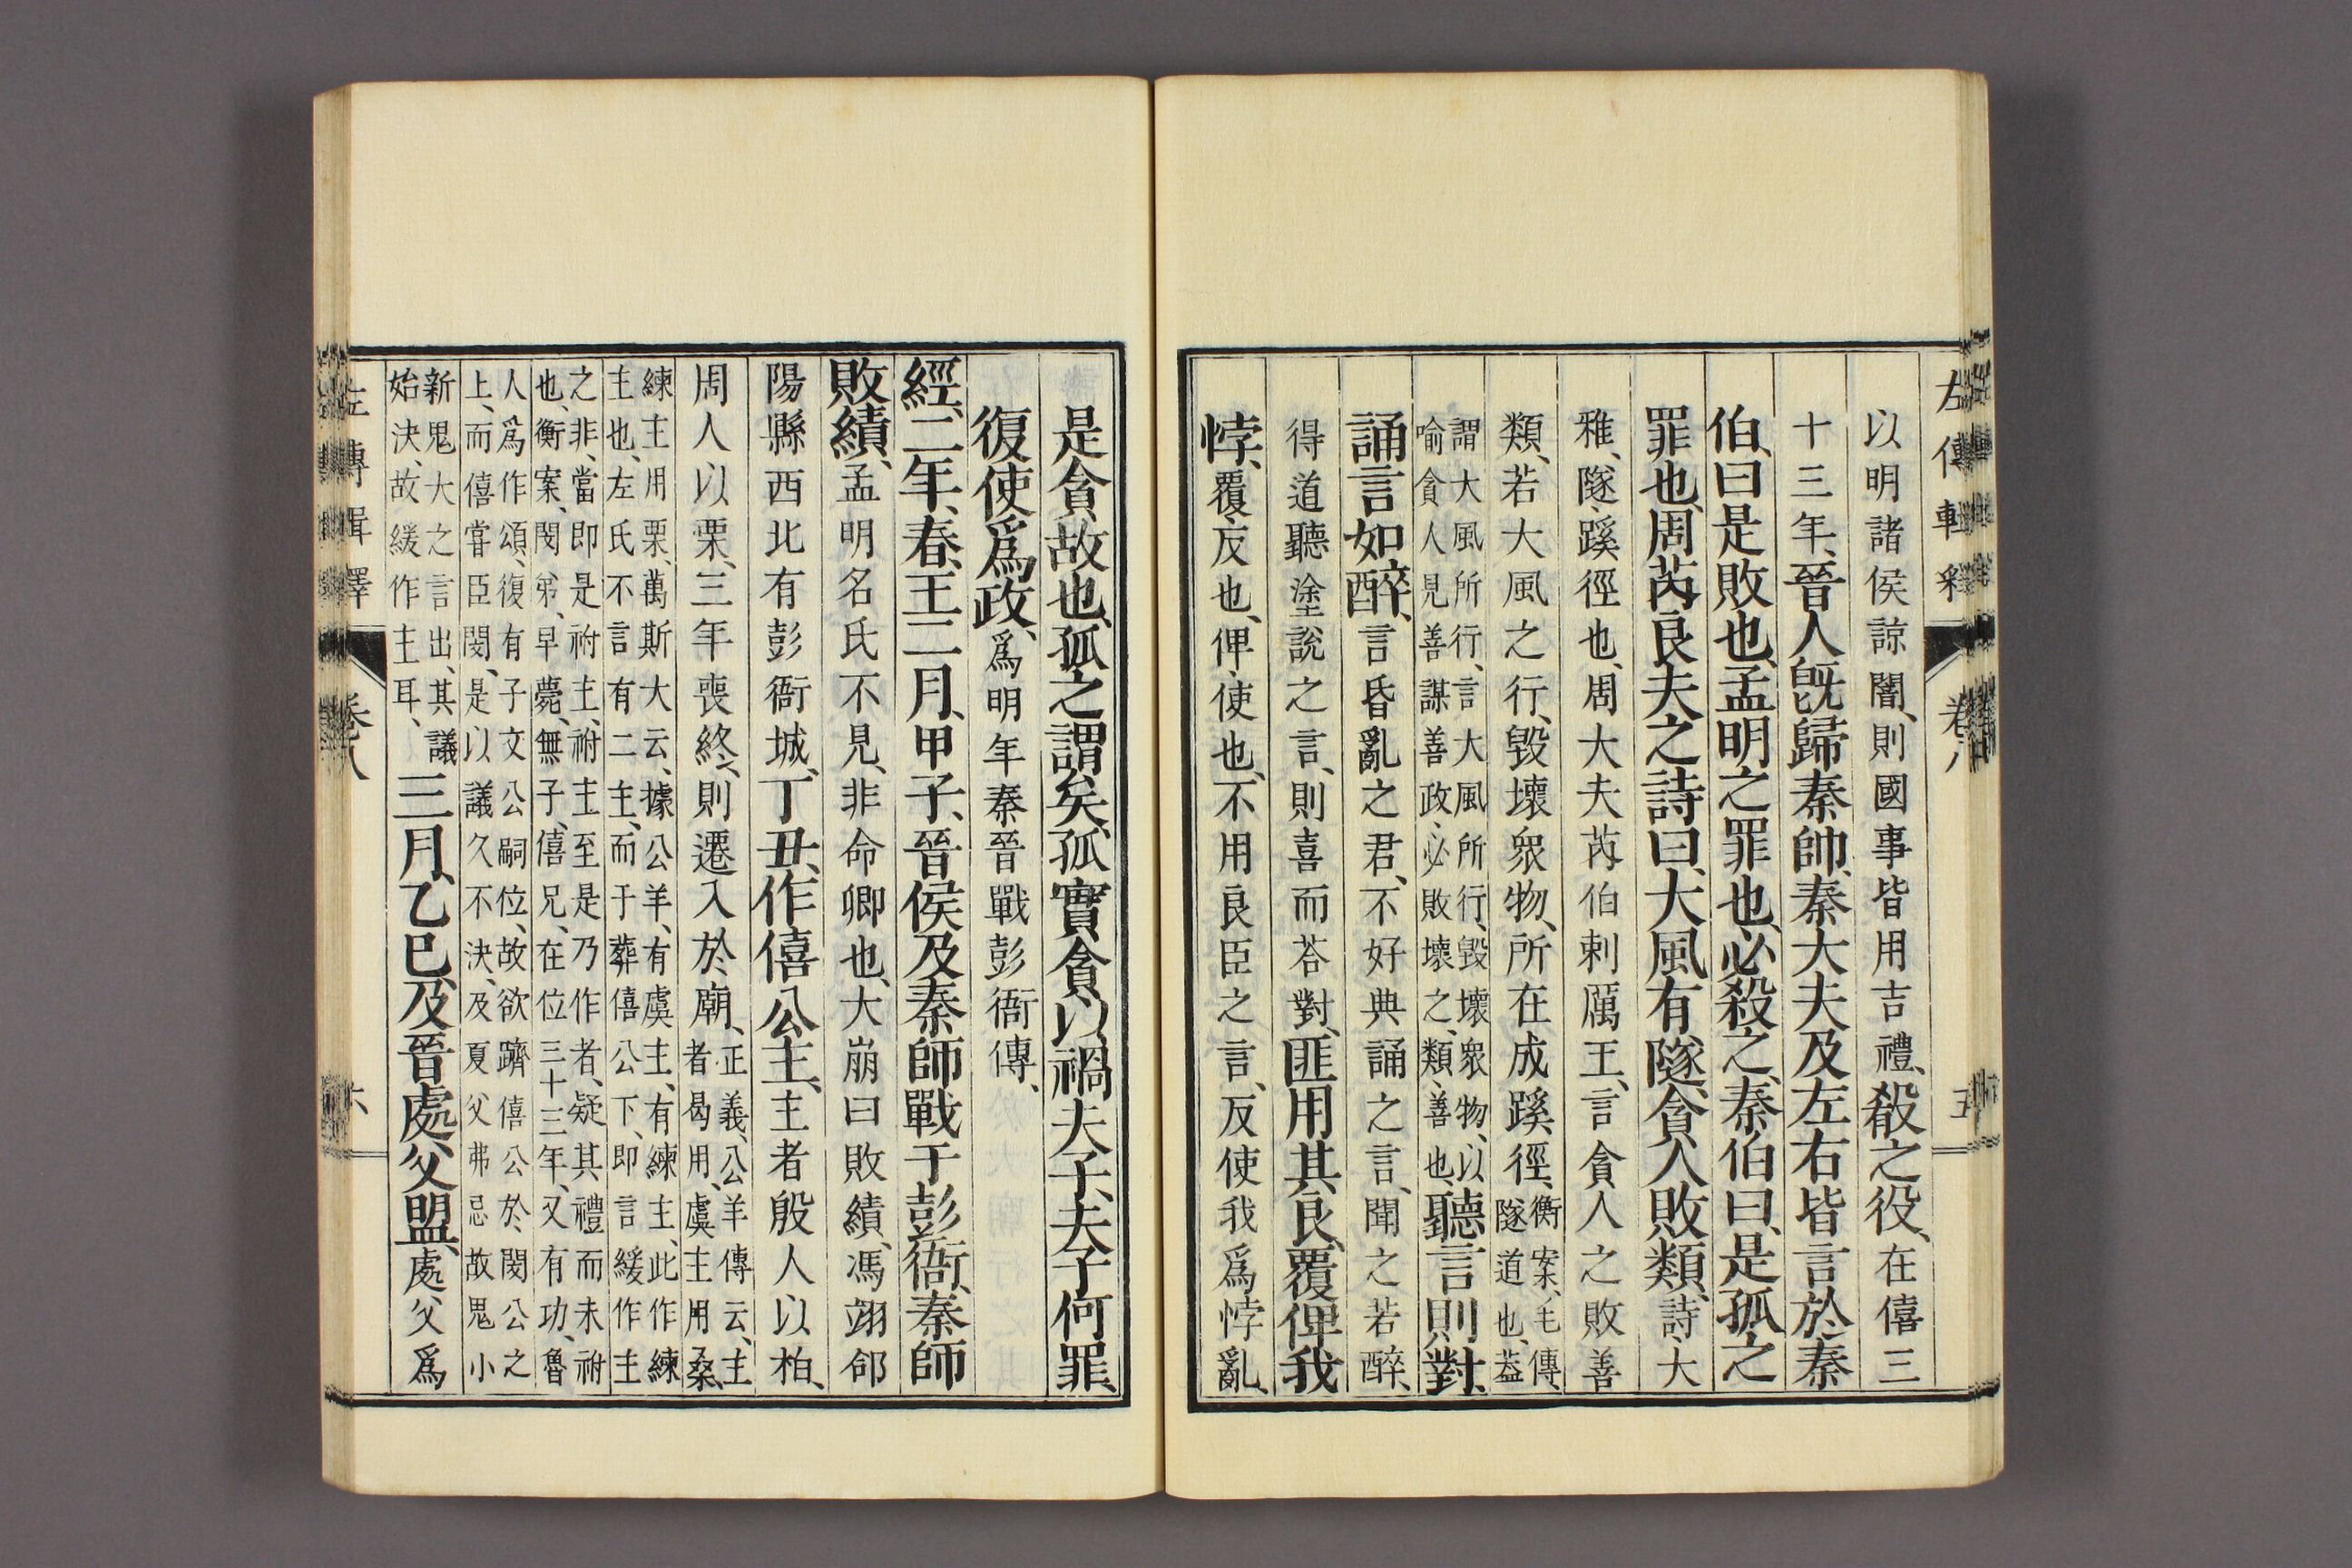 左傳輯釋 卷八 五
以明諸侯諒闇、則國事皆用吉禮、殽之役、在僖三
十三年、晉人旣歸秦帥、秦大夫及左右皆言於秦
伯、曰是敗也、孟明之罪也、必殺之、秦伯曰、是孤之
罪也、周芮良夫之詩曰、大風有隧、貪人敗類、詩、大
雅、隧、蹊、徑也、周大夫芮伯刺厲王、言貪人之敗善
類、若大風之行、毀壞衆物、所在成蹊徑、衡案、毛傳、
隧道也、葢
謂大風所行、言大風所行、毀壞衆物、以
喻貪人見善謀善政、必敗壞之、類、善也、聽言則對、
誦言如醉、言昏亂之君、不好典誦之言、聞之若醉、
得道聽塗說之言、則喜而荅對、匪用其良、覆俾我
悖、覆、反也、俾、使也、不用良臣之言、反使我爲悖亂、
是貪故也、孤之謂矣、孤實貪以禍夫子、夫子何罪、
復使爲政、爲明年秦晉戰彭衙傳、
經、二年、春、王二月、甲子、晉侯及秦師戰于彭衙、秦師
敗績、孟明名氏不見、非命卿也、大崩曰敗績、馮翊郃
陽縣西北有彭衙城、丁丑、作僖公主、主者殷人以柏、
周人以栗、三年喪終、則遷入於廟、正義、公羊傳云、主
者曷用、虞主用桑、
練主用栗、萬斯大云、據公羊、有虞主、有練主、此作練
主也、左氏不言有二主、而于葬僖公下、即言緩作主
之非、當即是祔主、祔主至是乃作者、疑其禮而未祔
也、衡案、閔、弟、早薨、無子、僖兄、在位三十三年、又有功、魯
人爲作頌、復有子文公嗣位、故欲躋僖公於閔公之
上、而僖嘗臣閔、是以議久不決、及夏父弗忌故鬼小
新鬼大之言出、其議
始決、故緩作主耳、三月、乙巳、及晉處父盟、處父爲
左傳輯釋 卷八 六